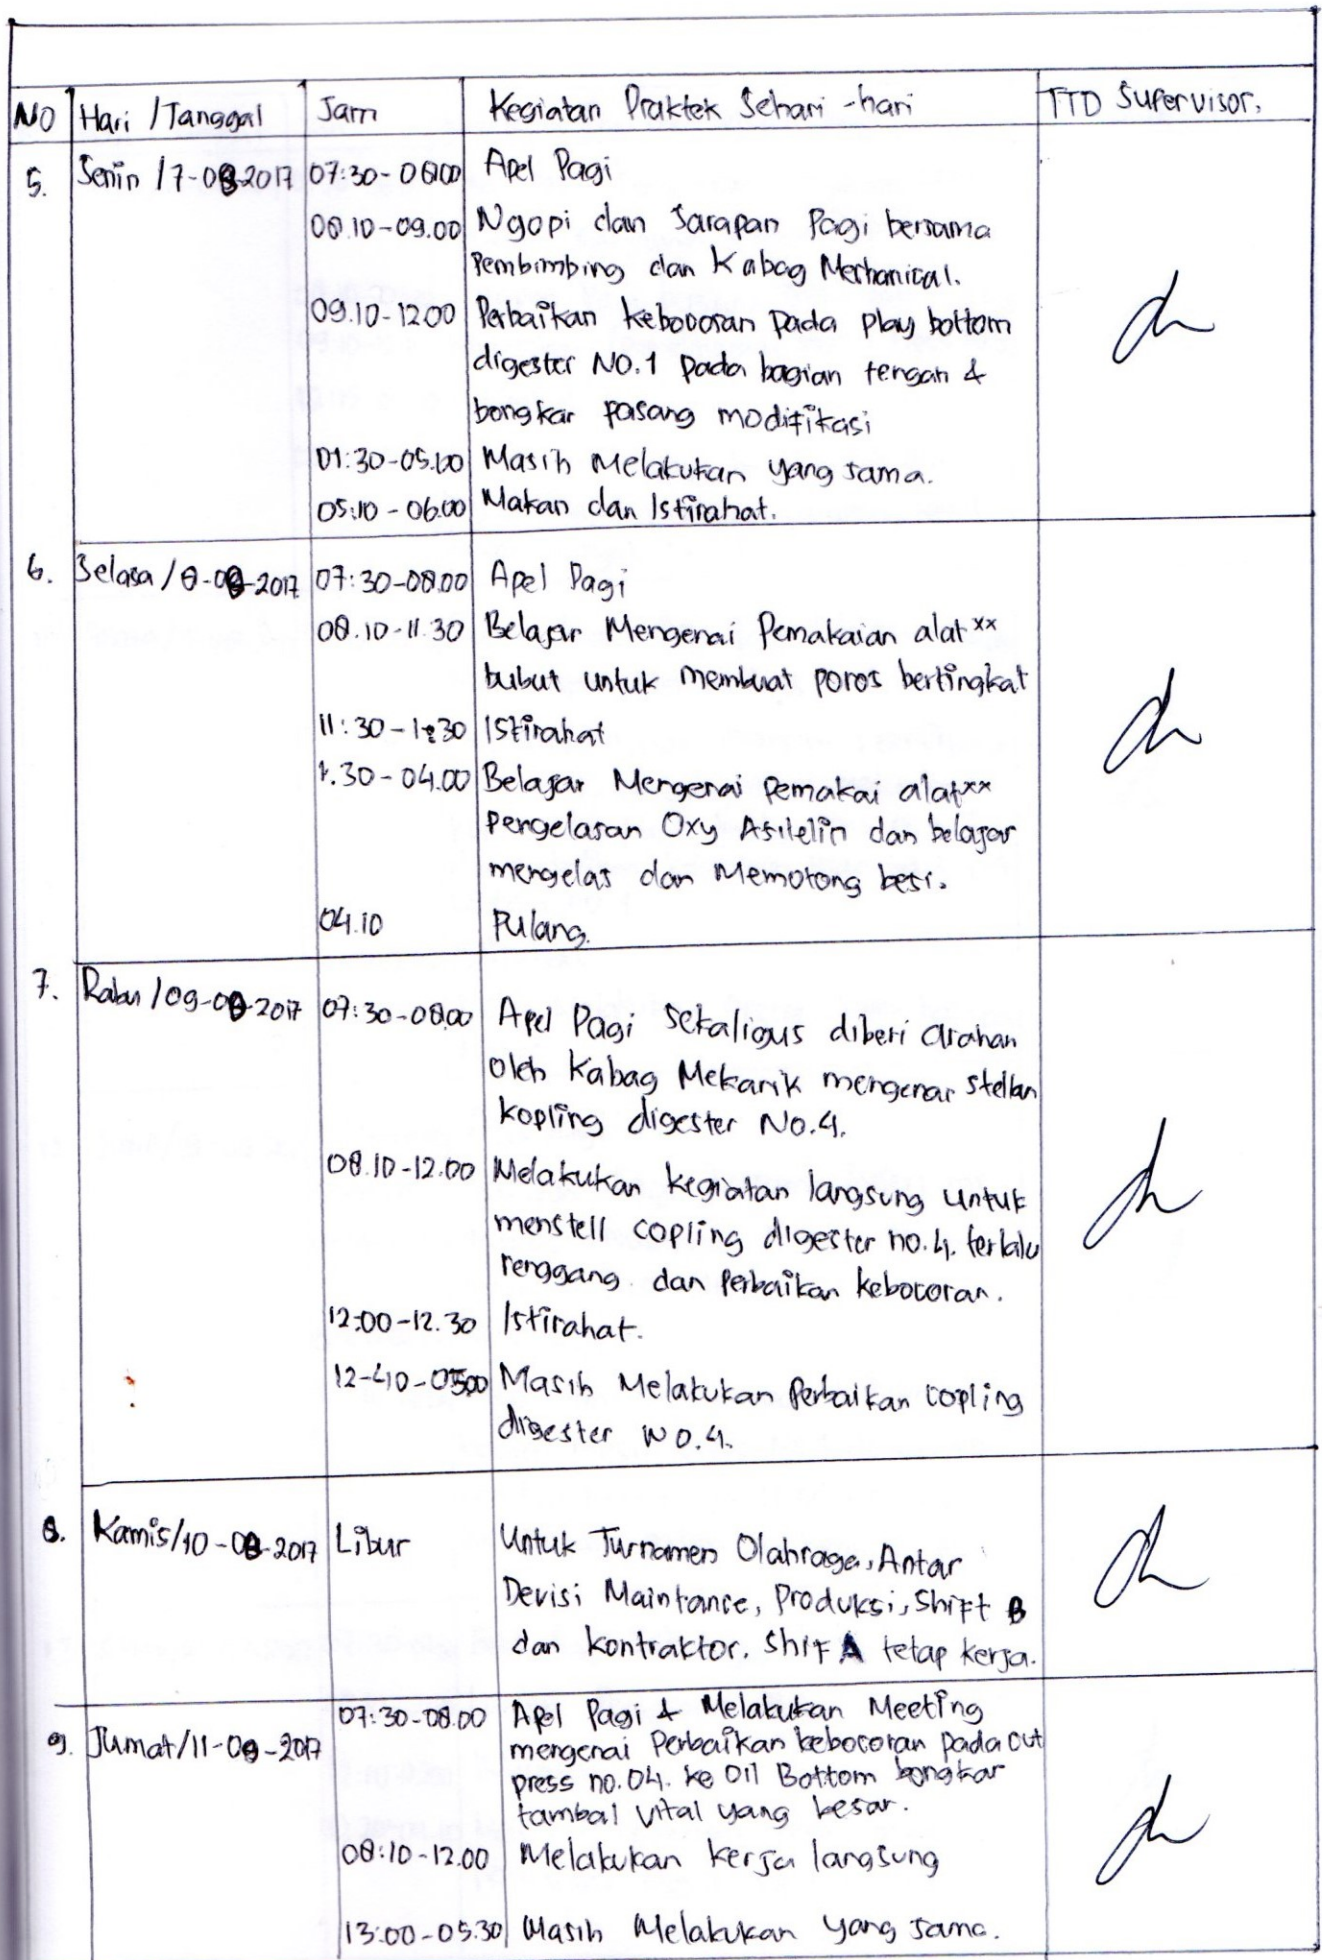 NO Hari / Tanggal Jam Kegiatan Praktek Sehari - hari TTD Supervisor.
5. Senin / 7-08-2017 07:30 - 08.00 Apel Pagi
08.10 - 09.00 Ngopi dan Sarapan Pagi bersama
Pembimbing dan Kabag Merhanical.
09.10 - 12 00 Perbaikan kebocoran pada play bottom
digester NO.1 pada bagian tengah &
bongkar pasang modifikasi
01:30 - 05.00 Masih Melakukan yang sama.
05:10 - 06.00 Makan dan Istirahat.
6. Selasa / 8-08-2017 07:30 - 08.00 Apel Pagi
08.10 - 11.30 Belajar Mengenai Pemakaian alat xx
bubut untuk membuat poros bertingkat
11:30 - 1:30 Istirahat
1.30 - 04.00 Belajar Mengenai Pemakai alat xx
Pengelasan Oxy Asitelin dan belajar
mengelas dan Memotong besi.
04.10 Pulang.
7. Rabu / 09-08-2017 07:30 - 08.00 Apel Pagi sekaligus diberi arahan
oleh Kabag Mekanik mengenai stellan
kopling digester No.4.
08.10 - 12.00 Melakukan kegiatan langsung untuk
menstell copling digester no. 4. terlalu
renggang dan Perbaikan kebocoran.
12:00 - 12.30 Istirahat.
12-40 - 0500 Masih Melakukan Perbaikan copling
digester NO.4.
8. Kamis/10-08-2017 Libur Untuk Turnamen Olahraga, Antar
Devisi Maintance, Produksi, Shift B
dan kontraktor. Shif A tetap kerja.
9. Jumat/11-08-2017 07:30 - 08.00 Apel Pagi & Melakukan Meeting
mengenai Perbaikan kebocoran pada cut
press no. 04. ke Oil Bottom bongkar
tambal vital yang besar.
08:10 - 12.00 Melakukan kerja langsung
13:00 - 05.30 Masih Melakukan yang sama.